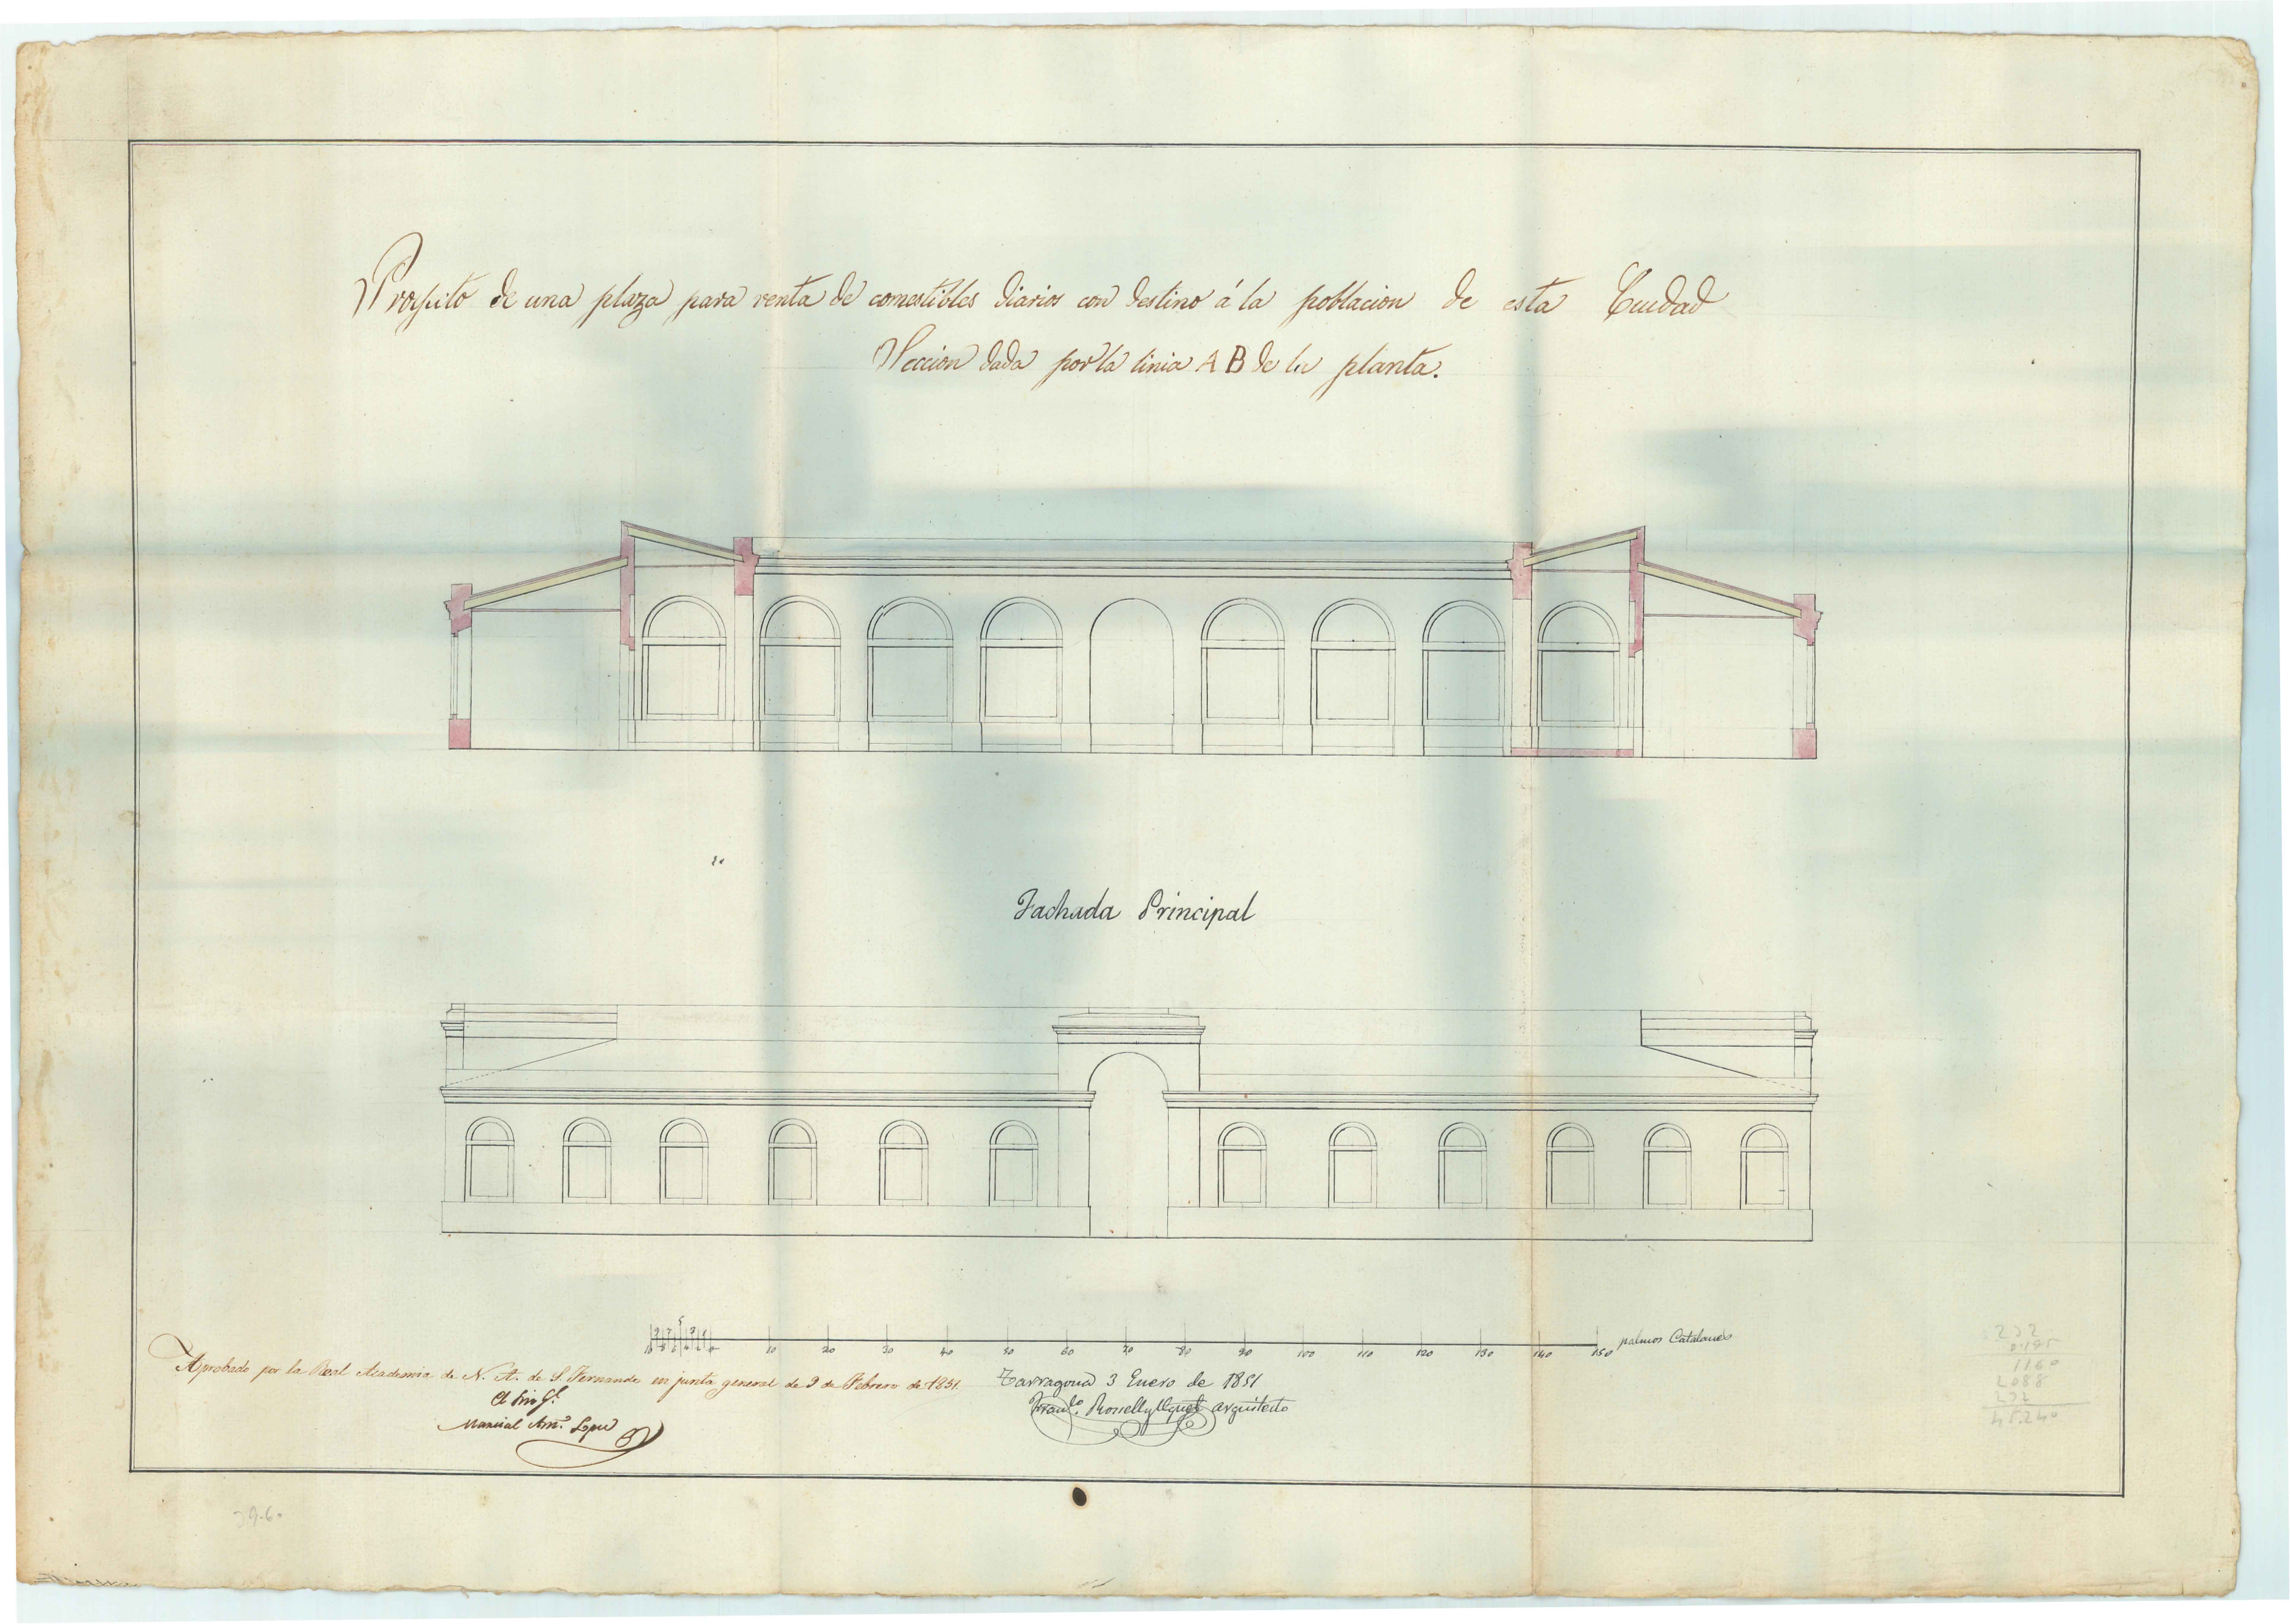 Proyecto de una plaza para venta de comestibles diarios con destino á la poblacion de esta Ciudad
Seccion dada por la linia A B de la planta.
Fachada Principal
10 20 30 40 50 60 70 80 90 100 110 120 130 140 150 palmos Catalanes
Aprobado por la Real Academia de N. A. de S. Fernando en junta general de 9 de Febrero de 1851.
Marcial Ant.º Lopez
Tarragona 3 Enero de 1851
Fran.co Rosell y arquitecto
39-6
232
0.195
1160
2088
232
45.240